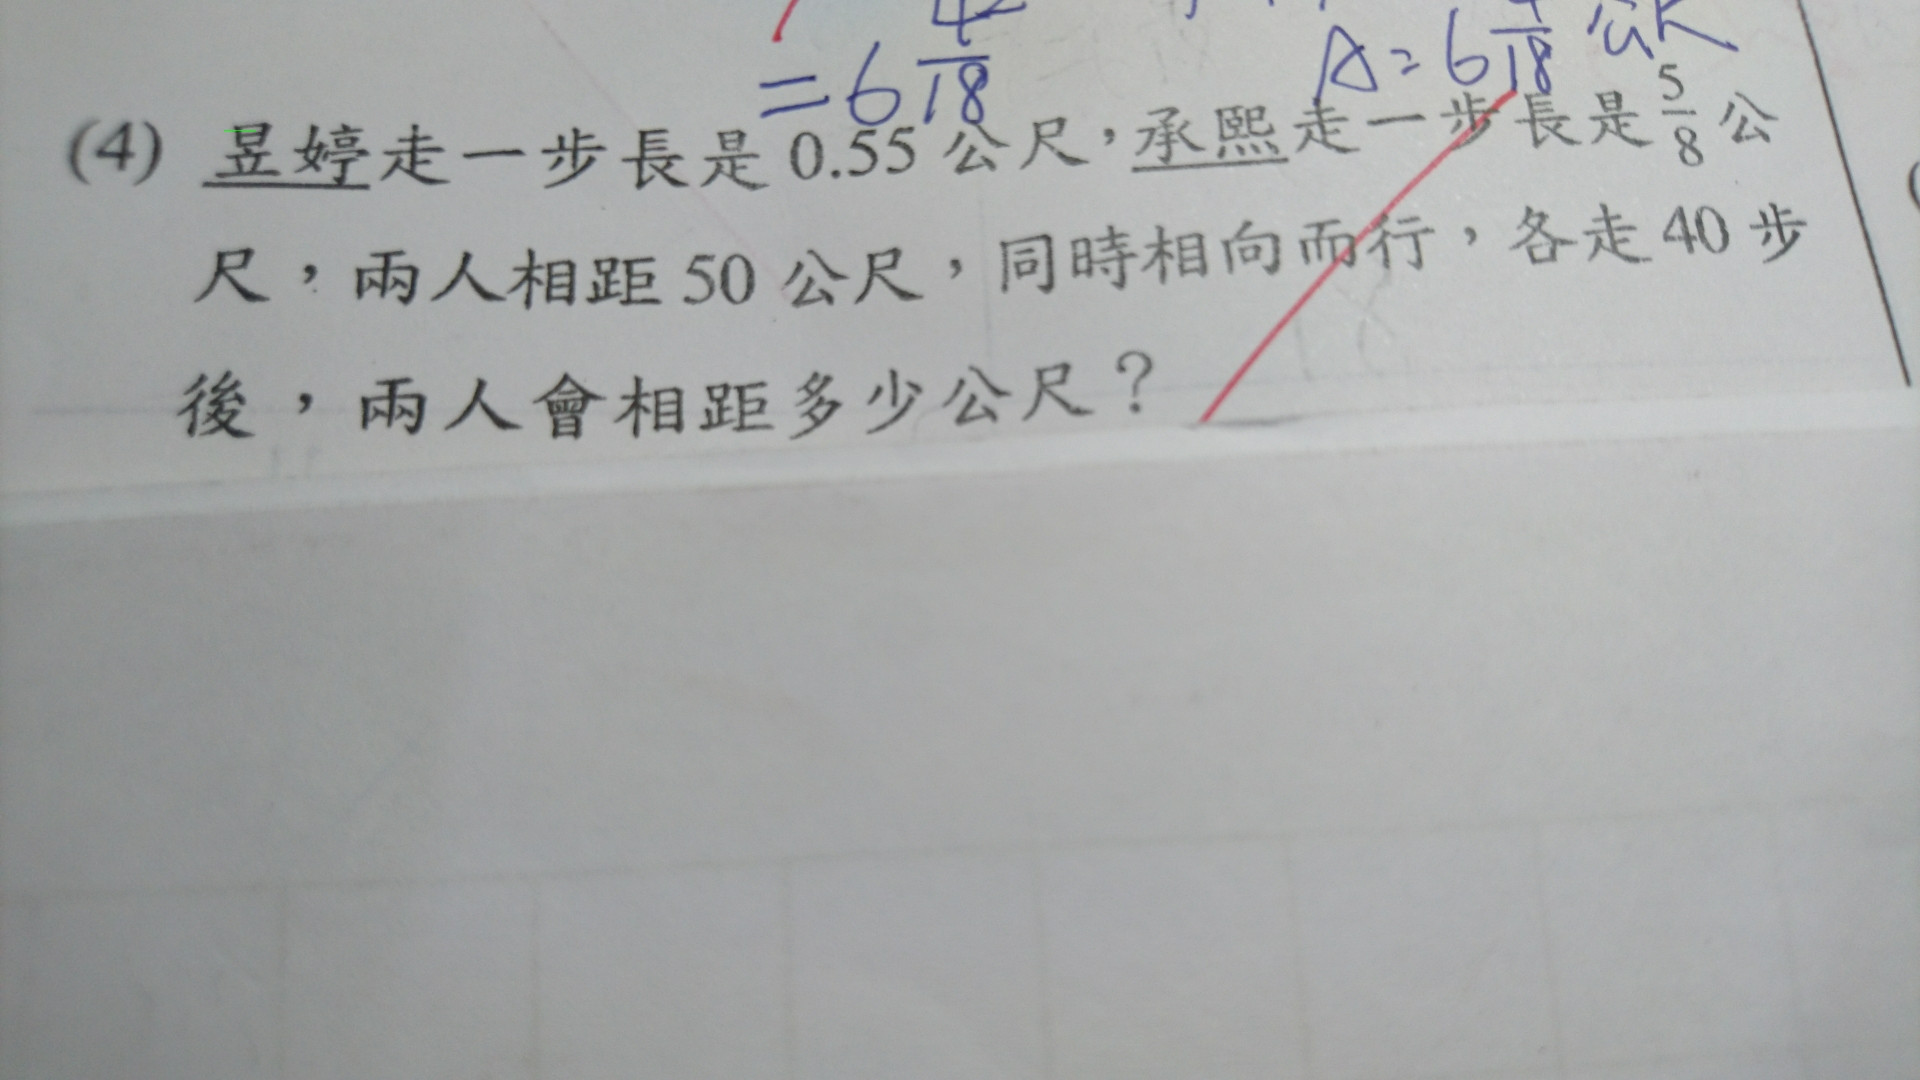 = 6 4/18
A = 6 4/18 公尺
(4) 昱婷走一步長是 0.55 公尺，承熙走一步長是 5/8 公
尺，兩人相距 50 公尺，同時相向而行，各走 40 步
後，兩人會相距多少公尺？